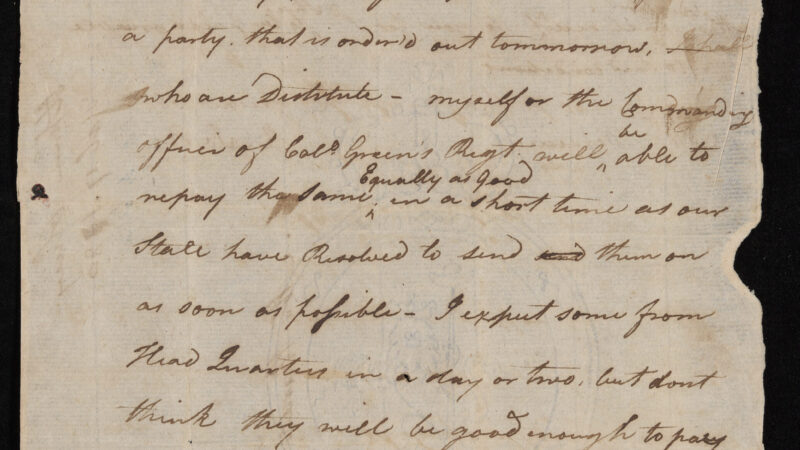 a party. that is order'd out tommorrow,
who are Distitute - myself or the Commanding
officer of Colo. Green's Regt. will be able to
repay the same Equally as good in a short time as our
State have Resolved to send them on
as soon as possible - I expect some from
Head Quarters in a day or two, but dont
think they will be good enough to pay